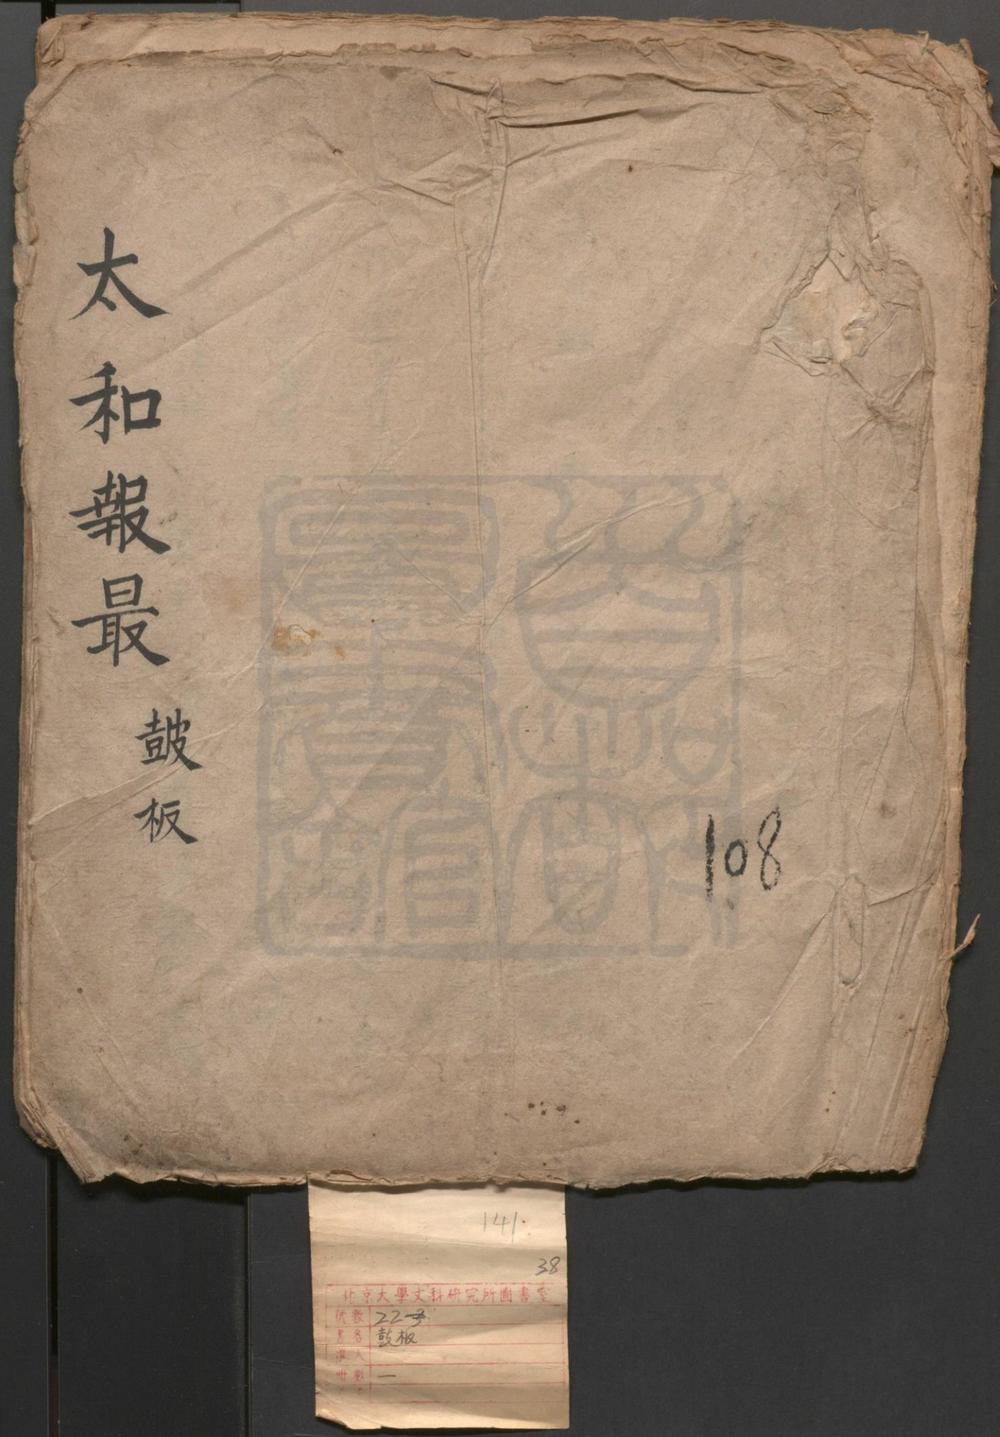 太和報最
鼓板
108
141.
38
北京大學文科研究所圖書室
22号
書名 鼓板
冊數 一